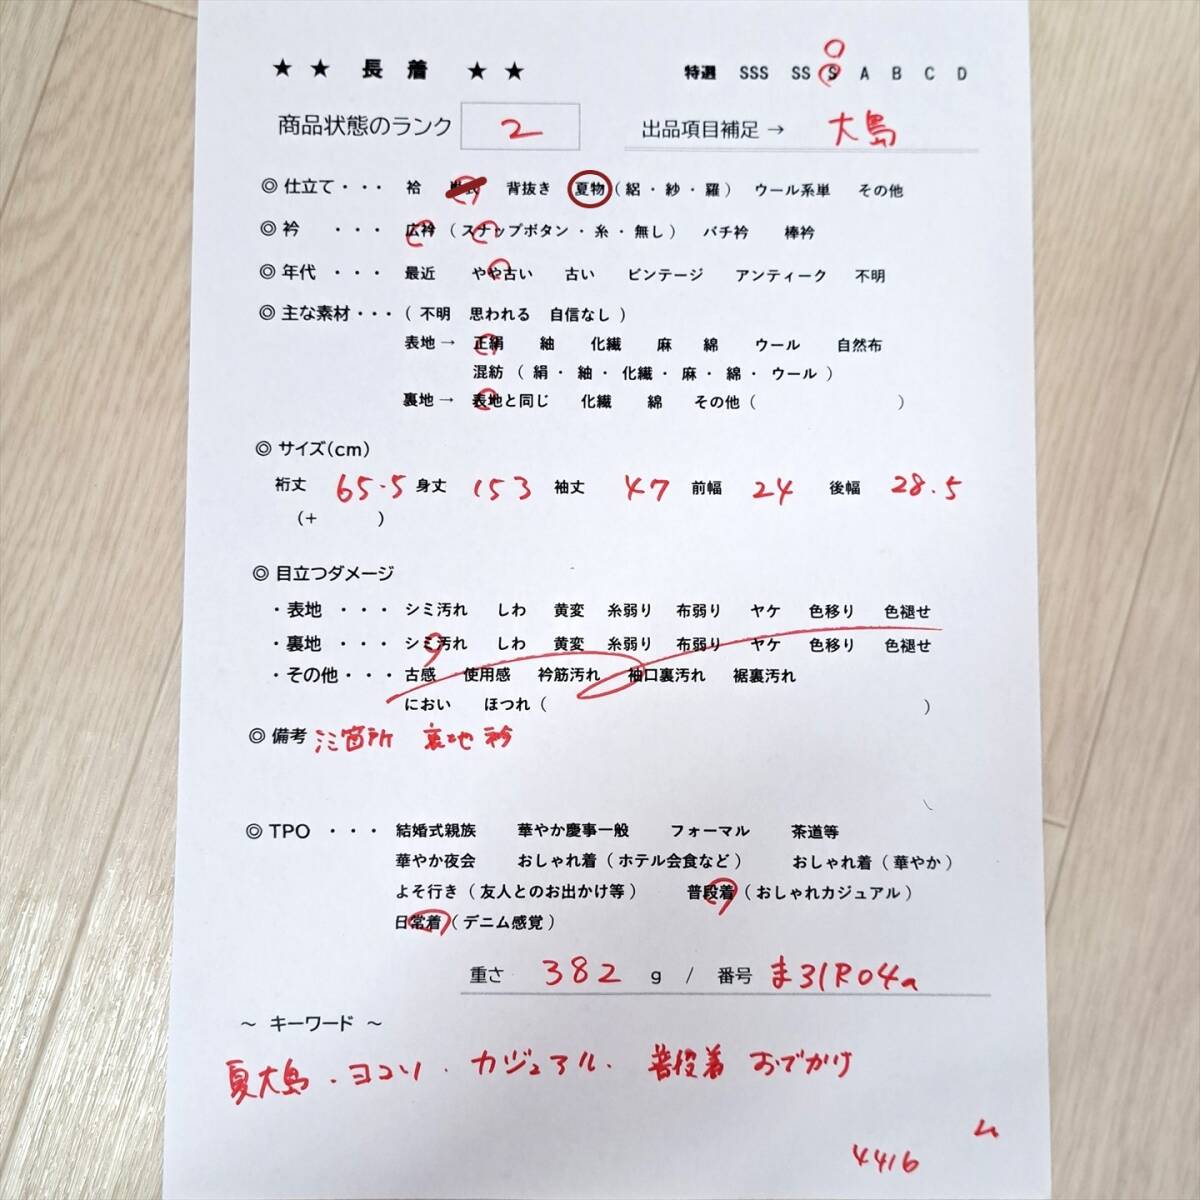 ★ ★ 長 着 ★ ★ 特選 SSS SS S A B C D
商品状態のランク 2 出品項目補足 → 大島
◎ 仕立て・・・ 袷 背抜き 夏物 ( 絽 ・ 紗 ・ 羅 ) ウール系単 その他
◎ 衿 ・・・ 広衿 ( スナップボタン ・ 糸 ・ 無し ) バチ衿 棒衿
◎ 年代 ・・・ 最近 やや古い 古い ビンテージ アンティーク 不明
◎ 主な素材・・・ ( 不明 思われる 自信なし )
表地 → 正絹 紬 化繊 麻 綿 ウール 自然布
混紡 ( 絹 ・ 紬 ・ 化繊 ・ 麻 ・ 綿 ・ ウール )
裏地 → 表地と同じ 化繊 綿 その他 ( )
◎ サイズ(cm)
裄丈 65.5 身丈 153 袖丈 47 前幅 24 後幅 28.5
(+ )
◎ 目立つダメージ
・表地 ・・・ シミ汚れ しわ 黄変 糸弱り 布弱り ヤケ 色移り 色褪せ
・裏地 ・・・ シミ汚れ しわ 黄変 糸弱り 布弱り ヤケ 色移り 色褪せ
・その他・・・ 古感 使用感 衿筋汚れ 袖口裏汚れ 裾裏汚れ
におい ほつれ ( )
◎ 備考 シミ箇所 裏地 衿
◎ TPO ・・・ 結婚式親族 華やか慶事一般 フォーマル 茶道等
華やか夜会 おしゃれ着 ( ホテル会食など ) おしゃれ着 ( 華やか )
よそ行き ( 友人とのお出かけ等 ) 普段着 ( おしゃれカジュアル )
日常着 ( デニム感覚 )
重さ 382 g / 番号 ま31R04a
～ キーワード ～
夏大島 ・ ヨコソ ・ カジュアル ・ 普段着 おでかけ
ム
4416